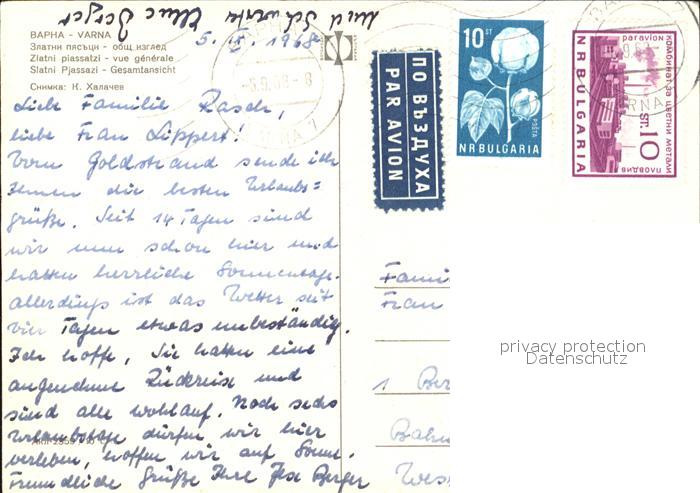 ВАРНА - VARNA
Златни пясъци - общ изглед
Zlatni piassatzi - vue générale
Slatni Pjassazi - Gesamtansicht
Снимка: К. Халачев
5. IX. 1968
Liebe Familie Rasch,
liebe Frau Lippert!
Vom Goldstrand sende ich
Ihnen die besten Urlaubs=
grüße. Seit 14 Tagen sind
wir nun schon hier und
hatten herrliche Sonnentage.
allerdings ist das Wetter seit
vier Tagen etwas unbeständig.
Ich hoffe, Sie hatten eine
angenehme Rückreise und
sind alle wohlauf. Noch sechs
Urlaubstage dürfen wir hier
verleben, hoffen wir auf Sonne.
Freundliche Grüße Ihre Ilse Berger
und
ПО ВЪЗДУХА
PAR AVION
10 СТ
ПОЩА
NR BULGARIA
par avion
комбинат за цветни метали
ПЛОВДИВ
ST. 10
NR BULGARIA
5.9.68-8
VARNA
Fami
Frau
1 Ber
Bahn
Wes
privacy protection
Datenschutz